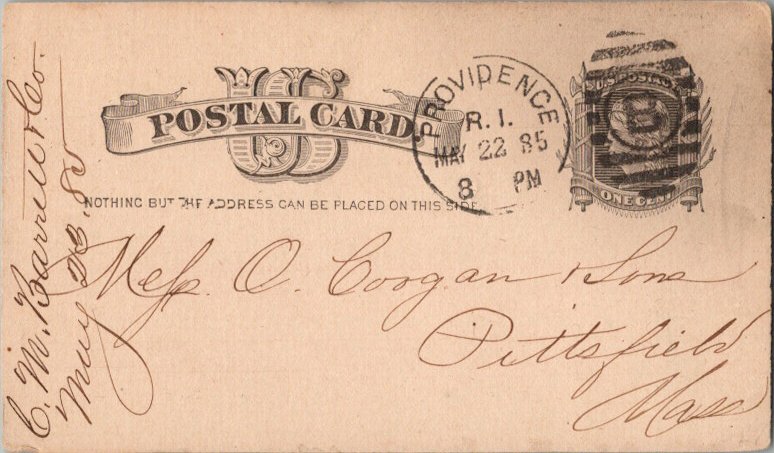 US
POSTAL CARD
NOTHING BUT THE ADDRESS CAN BE PLACED ON THIS SIDE
PROVIDENCE
R. I.
MAY 22 85
8 PM
U.S. POSTAGE
ONE CENT
Mess. O. Coogan & Sons
Pittsfield
Mass
C. M. Barrett & Co.
May 23. 85